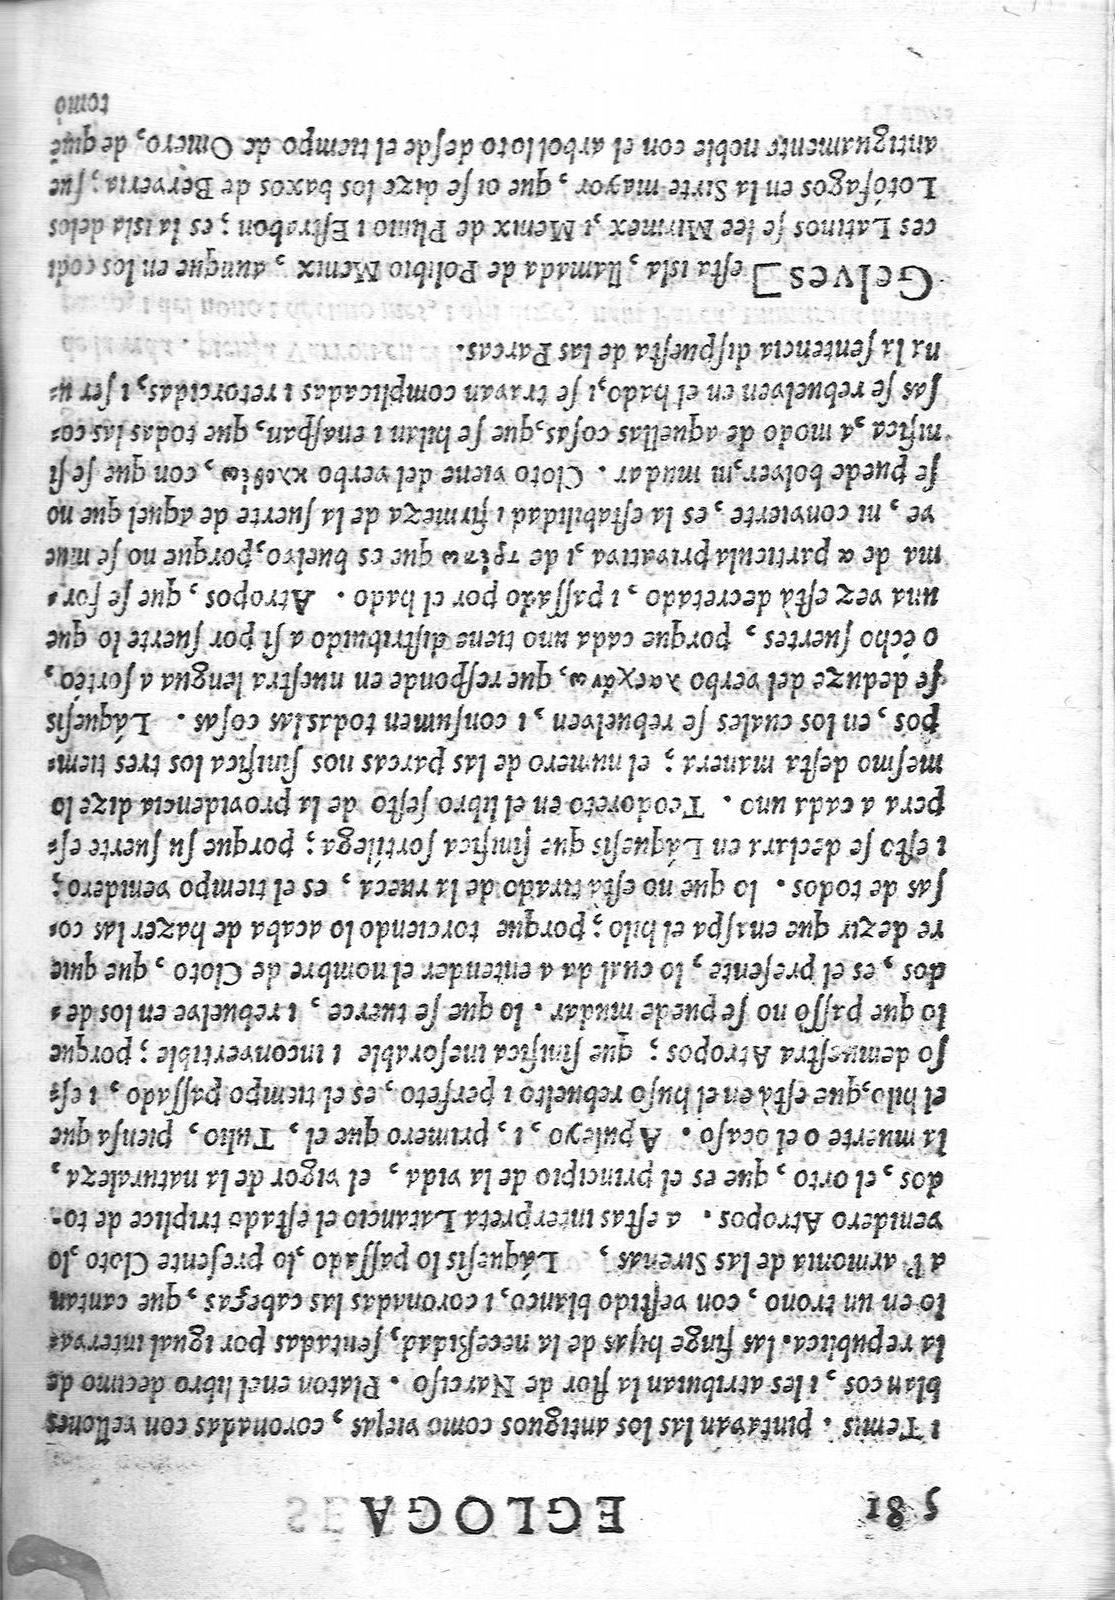 581 EGLOGA
i Temis. pintavan las los antiguos como viejas, coronadas con vellones
blancos, i les atribuian la flor de Narciso. Platon en el libro decimo de
la republica. las finge hijas de la neceßidad, ſentadas por igual interva-
lo en un trono, con veſtido blanco, i coronadas las cabeças, que cantan
a l'armonia de las Sirenas, Láqueſis lo paſſado, lo preſente Cloto, lo
venidero Atropos. a eſtas interpreta Latancio el eſtado triplice de to-
dos, el orto, que es el principio de la vida, el vigor de la naturaleza,
la muerte o el ocaſo. Apuleyo, i, primero que el, Tulio, pienſa que
el hilo, que eſtà en el huſo rebuelto i perfeto, es el tiempo paſſado, i eſ-
ſo demueſtra Atropos; que ſinifica ineſorable i inconvertible; porque
lo que paſſò no ſe puede mudar. lo que ſe tuerce, i rebuelve en los de-
dos, es el preſente, lo cual da a entender el nombre de Cloto, que quie
re dezir que enaſpa el hilo; porque torciendolo acaba de hazer las co-
ſas de todos. lo que no eſtà tirado de la rueca, es el tiempo venidero;
i eſto ſe declara en Láqueſis que ſinifica ſortílega; porque ſu ſuerte eſ-
pera a cada uno. Teodoreto en el libro ſeſto de la providencia dize lo
meſmo deſta manera; el numero de las parcas nos ſinifica los tres tiem-
pos, en los cuales ſe rebuelven, i conſumen todas las coſas. Láqueſis
ſe deduze del verbo λαχάνω, que reſponde en nueſtra lengua a ſorteo,
o écho ſuertes, porque cada uno tiene diſtribuido a ſi por ſuerte lo que
una vez eſtà decretado, i paſſado por el hado. Atropos, que ſe for-
ma de α particula privativa, i de τρέπω que es buelvo, porque no ſe mue
ve, ni convierte, es la eſtabilidad i firmeza de la ſuerte de aquel que no
ſe puede bolver, ni mudar. Cloto viene del verbo κλοθέω, con que ſe ſi
nifica, a modo de aquellas coſas, que ſe hilan i enaſpan, que todas las co-
ſas ſe rebuelven en el hado, i ſe travan complicadas i retorcidas, i ſer u-
na la ſentencia diſpueſta de las Parcas.
Gelves] eſta isla, llamada de Polibio Menix, aunque en los codi
ces Latinos ſe lee Mirmex, i Menix de Plinio i Eſtrabon; es la isla delos
Lotófagos en la Sirte mayor, que oi ſe dize los baxos de Berveria; fue
antiguamente noble con el arbol loto deſde el tiempo de Omero, de quié
tomò